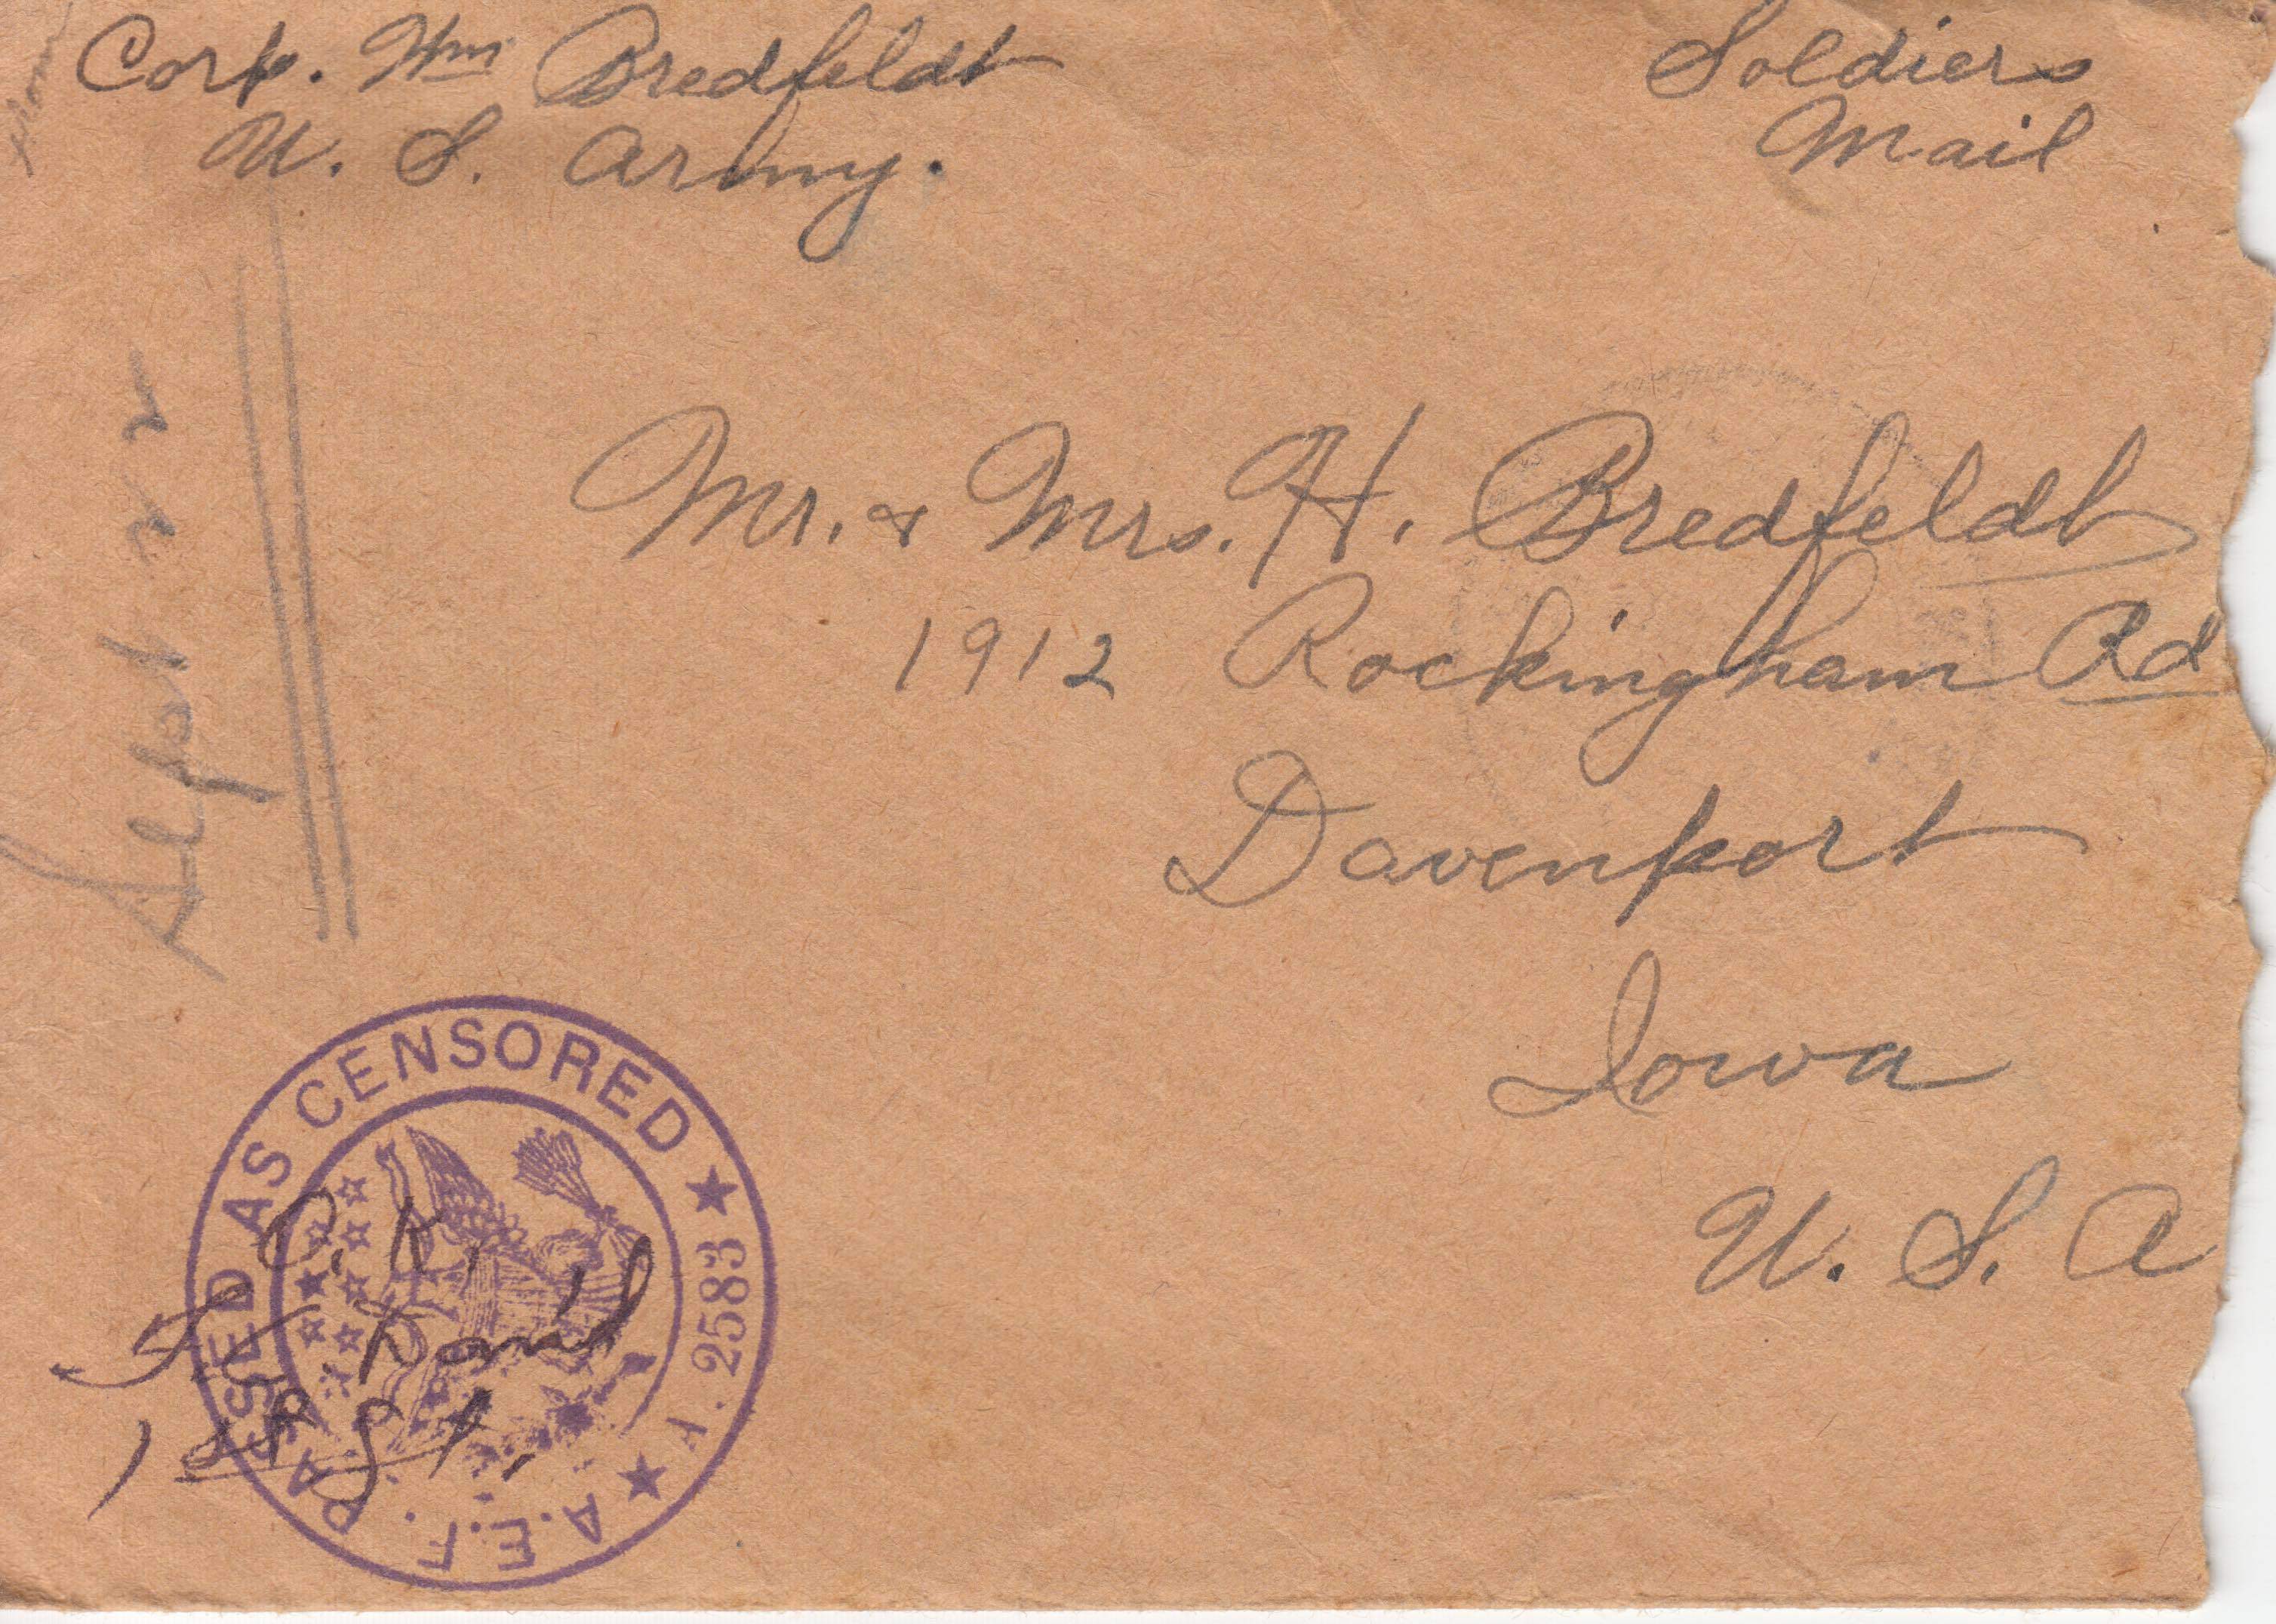 from
Corp. Wm Bredfeldt
U. S. Army.
Soldiers
Mail
Sept 22
Mr. & Mrs. H. Bredfeldt
1912 Rockingham Rd
Davenport
Iowa
U. S. A
A.E.F. PASSED AS CENSORED
A. 2583
O.K.
1st Lt.